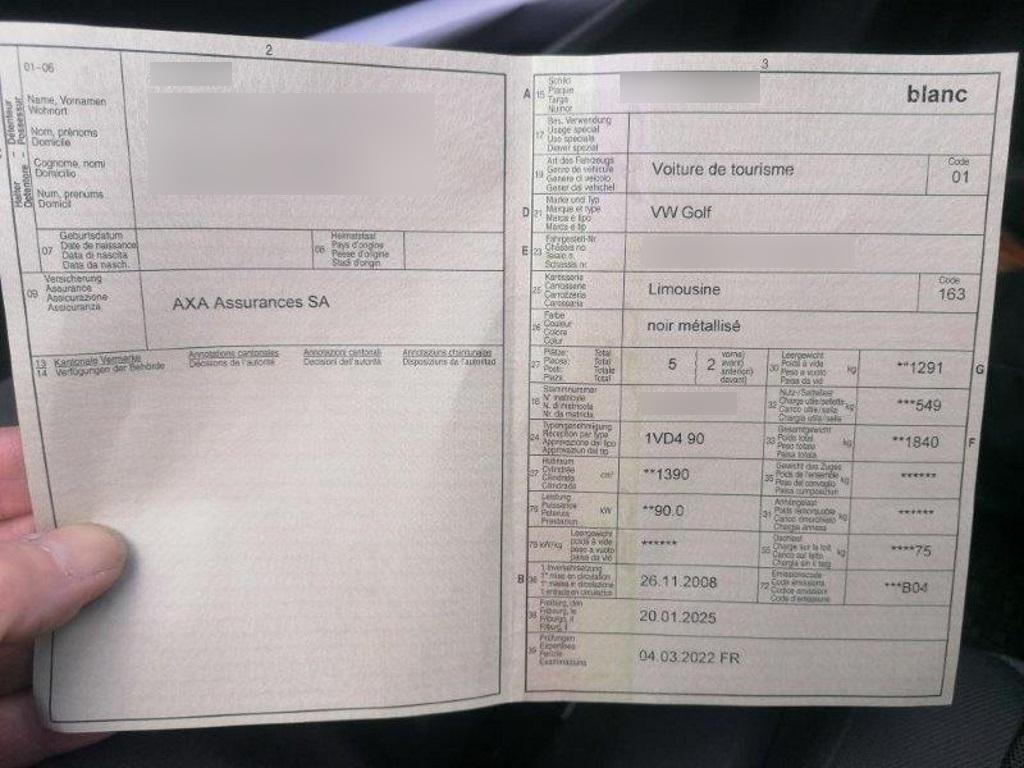 2
01-06
Halter – Détenteur
Detentore – Possessur
Name, Vornamen
Wohnort
Nom, prénoms
Domicile
Cognome, nomi
Domicilio
Num, prenums
Domicil
07
Geburtsdatum
Date de naissance
Data di nascita
Data da nasch.
08
Heimatstaat
Pays d'origine
Paese d'origine
Stadi d'origin
09
Versicherung
Assurance
Assicurazione
Assicuranza
AXA Assurances SA
13 Kantonale Vermerke
14 Verfügungen der Behörde
Annotations cantonales
Décisions de l'autorité
Annotazioni cantonali
Decisioni dell'autorità
Annotaziuns chantunalas
Disposiziuns da l'autoritad
3
A 15
Schild
Plaque
Targa
Numer
blanc
17
Bes. Verwendung
Usage spécial
Uso speciale
Diever spezial
19
Art des Fahrzeugs
Genre de véhicule
Genere di veicolo
Gener dal vehichel
Voiture de tourisme
Code
01
D 21
Marke und Typ
Marque et type
Marca e tipo
Marca e tip
VW Golf
E 23
Fahrgestell-Nr.
Châssis no
Telaio n.
Schassis nr.
25
Karosserie
Carrosserie
Carrozzeria
Carossaria
Limousine
Code
163
26
Farbe
Couleur
Colore
Colur
noir métallisé
27
Plätze: Total
Places: Total
Posti: Totale
Plazs: Total
5 ( 2
vorne)
avant)
anteriori)
davant)
30
Leergewicht
Poids à vide
Peso a vuoto
Paisa da vid
kg
**1291
G
18
Stammnummer
N° matricule
N. di matricola
Nr. da matricla
32
Nutz-/Sattellast
Charge utile/sellette
Carico utile/sella
Chargia utila/sella
kg
***549
24
Typengenehmigung
Réception par type
Approvazione del tipo
Approvaziun dal tip
1VD4 90
33
Gesamtgewicht
Poids total
Peso totale
Paisa totala
kg
**1840
F
37
Hubraum
Cylindrée
Cilindrata
Cilindrada
cm³
**1390
35
Gewicht des Zuges
Poids de l'ensemble
Peso del convoglio
Paisa cumposiziun
kg
******
76
Leistung
Puissance
Potenza
Prestaziun
kW
**90.0
31
Anhängelast
Poids remorquable
Carico rimorchiato
Chargia annexa
kg
******
78 kW/kg
Leergewicht
poids à vide
peso a vuoto
paisa da vid
******
55
Dachlast
Charge sur le toit
Carico sul tetto
Chargia sin il tetg
kg
****75
B 36
1. Inverkehrsetzung
1re mise en circulation
1a messa in circolazione
1. entrada en circulaziun
26.11.2008
72
Emissionscode
Code émissions
Codice emissioni
Code d'emissiuns
***B04
38
Freiburg, den
Fribourg, le
Friburgo, il
Friburg, il
20.01.2025
39
Prüfungen
Expertises
Perizie
Examinaziuns
04.03.2022 FR